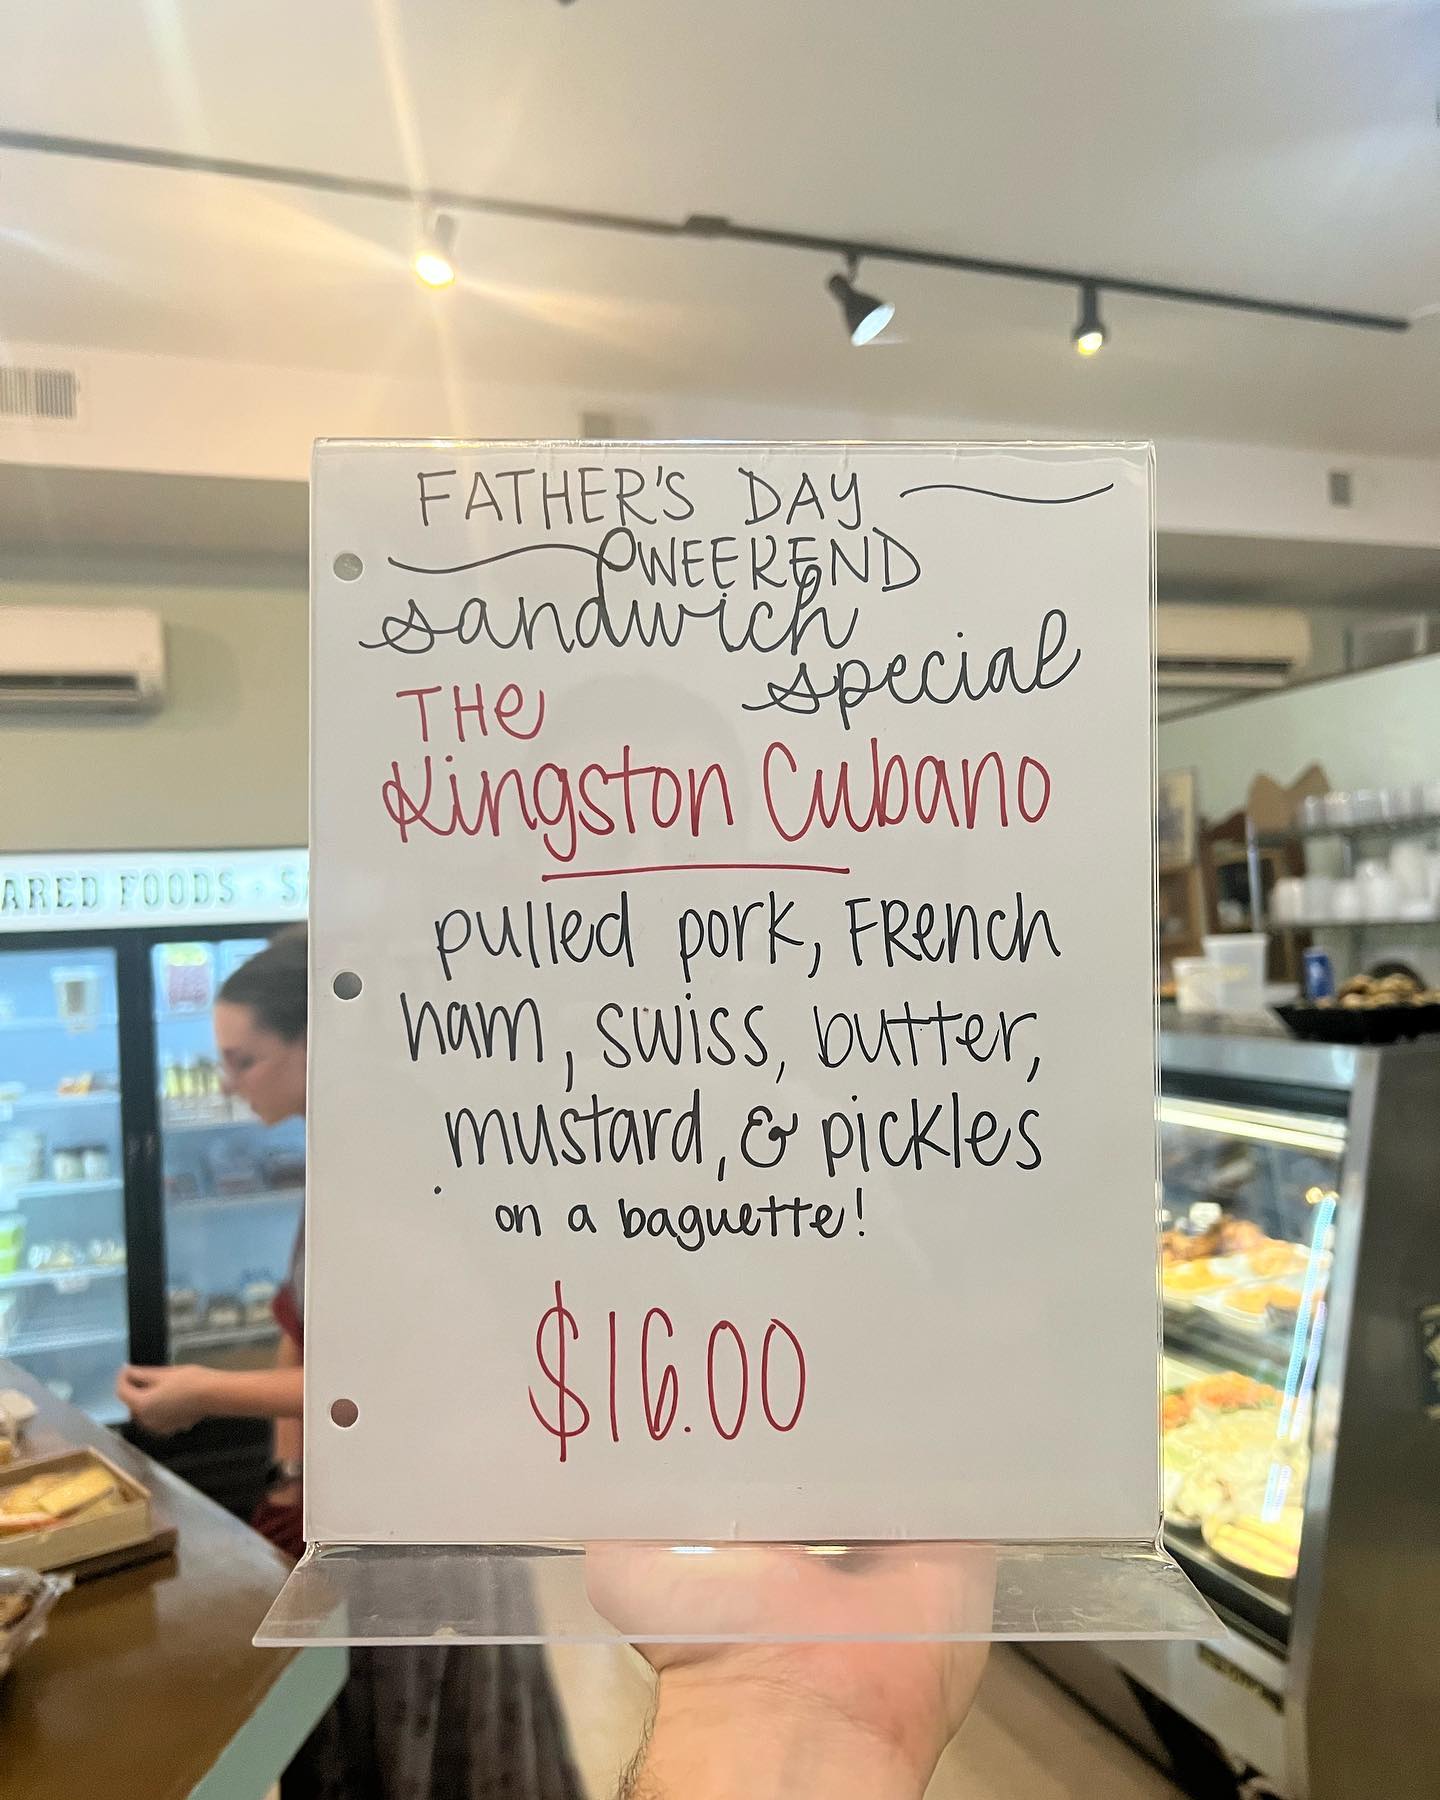 FATHER'S DAY
WEEKEND
sandwich
special
THe
Kingston Cubano
pulled pork, FRench
ham, swiss, butter,
mustard, & pickles
on a baguette!
$16.00
ARED FOODS · S